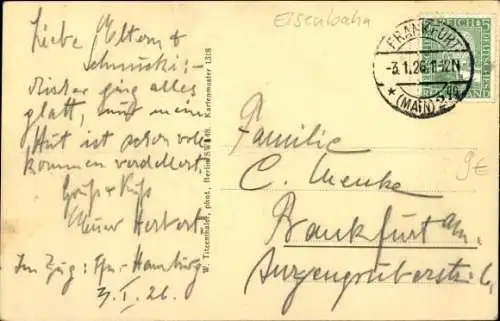 Liebe Eltern &
Schnucki: –
Bisher ging alles
glatt, nur mein
Hut ist schon voll-
kommen verdellert.
Gruß + Kuß
Euer Herbert.
Im Zug: Ffm-Hamburg
3. I. 26.
W. Titzenthaler, phot., Berlin SW 68. Kartenmuster 1318
Eisenbahn
FRANKFURT
-3.1.26.11-12N
* (MAIN)
Familie
C. Menke
Frankfurt a/m.
Anzengruberstr. 6,
9€